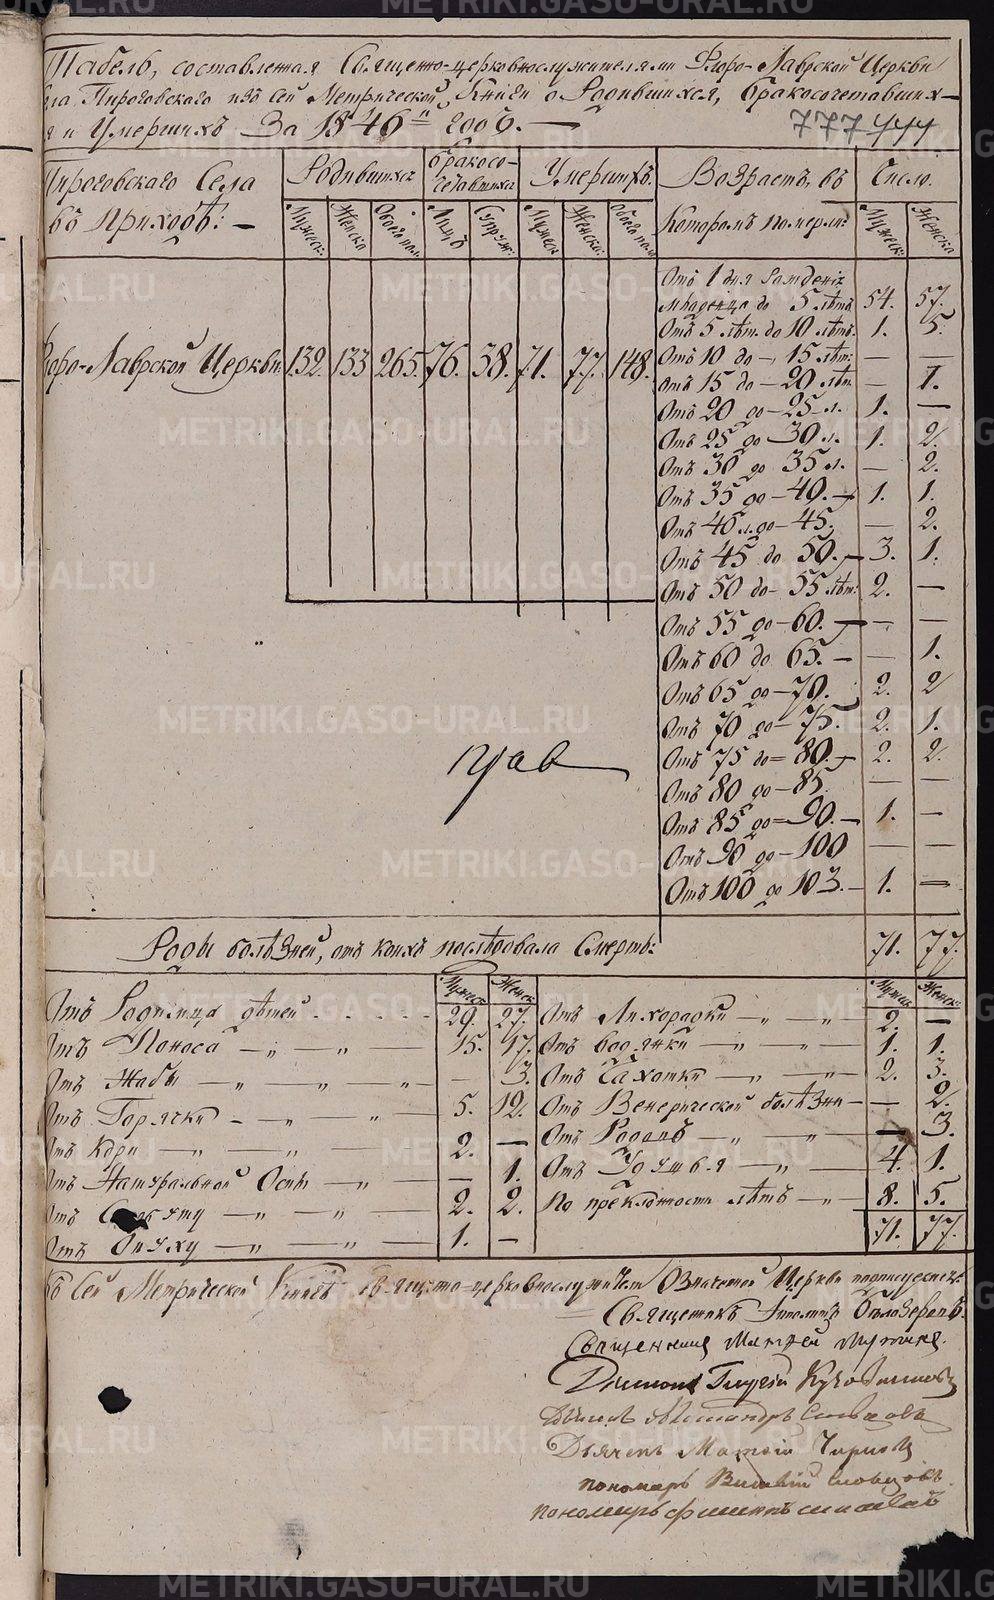 METRIKI.GASO-URAL.RU
Табель, составленная Священно-церковнослужителями Флоро-Лаврской Церкви
Пироговскаго изъ сей Метрической Книги о Родившихся, бракосочетавших-
я и Умершихъ За 1846й годъ. —
777
Пироговскаго Села
въ приходѣ: —
Родившихся
бракосо-
четавшихся
Умершихъ.
Возрастъ, въ
Которомъ померли:
Число.
Мужеск:
Женска
Обоего пол.
Лицъ
Супруж:
Мужеск
Женска:
Обоего пол
Мужеск:
Женска
Флоро-Лаврской Церкви: 132. 133 265. 76. 38. 71. 77. 148.
Отъ 1 дня рожденія
младенца до 5 лѣтъ 54. 57.
Отъ 5 лѣт. до 10 лѣтъ. 1. 5.
Отъ 10 до — 15 лѣт: — —
Отъ 15 до — 20 лѣт. — 1.
Отъ 20 до — 25 л. 1. —
Отъ 25 до 30 л. 1. 2.
Отъ 30 до 35 л. — 2.
Отъ 35 до — 40. — 1. 1.
Отъ 40 л. до — 45. — 2.
Отъ 45 до 50. — 3. 1.
Отъ 50 до — 55 лѣт: 2. —
Отъ 55 до — 60. — — —
Отъ 60 до 65. — — 1.
Отъ 65 до — 70. 2. 2
Отъ 70 до — 75. 2. 1.
Отъ 75 до — 80. — 2. 2.
Отъ 80 до — 85. — —
Отъ 85 до — 90. — 1. —
Отъ 90 до — 100 — —
Отъ 100 до 103. — 1. —
Роды болѣзней, отъ коихъ послѣдовала Смерть: 71. 77.
Мужеск Женск Мужск Женск:
Отъ Родимца дѣтей 29. 27. Отъ Лихорадки — „ — „ — 2. —
Отъ Поноса — „ — „ — 15. 17. Отъ водянки — „ — „ — 1. 1.
Отъ Жабы — „ — „ — „ — — 3. Отъ Чахотки — „ — „ — 2. 3.
Отъ Горячки — „ „ — 5. 12. Отъ Венерической болѣзни — — 2.
Отъ Кори — „ — „ — 2. — Отъ Родовъ — „ — „ — — 3.
Отъ Натуральной Оспы — „ — — 1. Отъ Удушья — „ — „ — 4. 1.
Отъ — „ — „ — 2. 2. По преклонности лѣтъ — „ — 8. 5.
Отъ Опуху — „ — „ — 1. — 71. 77.
Къ Сей Метрической Книгѣ священно-церковнослужители Означенной Церкви подписуемся:
Священникъ
Священникъ Матвей
Діаконъ Георгій
Александръ Словцовъ
Дьячекъ
пономарь Словцовъ.
пономарь